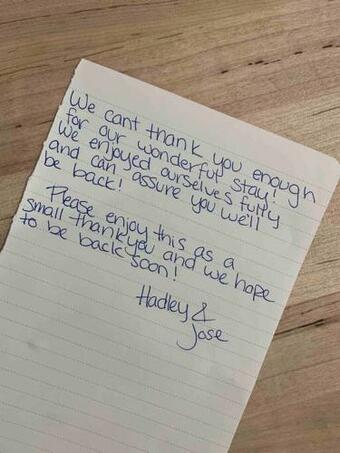 We cant thank you enough
for our wonderful stay!
We enjoyed ourselves fully
and can assure you we'll
be back!
Please enjoy this as a
small thankyou and we hope
to be back soon!
Hadley &
Jose